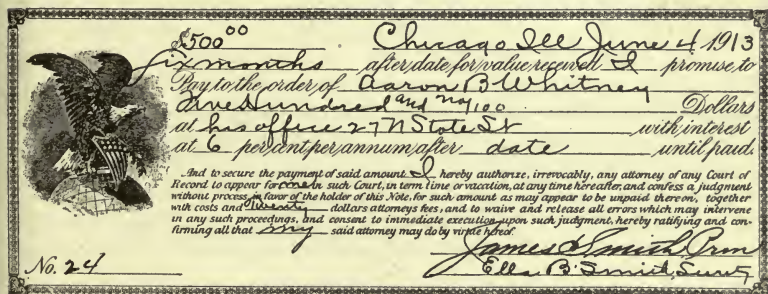 $500 00 Chicago Ill June 4 1913
Six months after date for value received I promise to
Pay to the order of Aaron B Whitney
Five Hundred and no/100 Dollars
at his office 27 N State St with interest
at 6 per cent per annum, after date until paid.
And to secure the payment of said amount I hereby authorize, irrevocably, any attorney of any Court of
Record to appear for me in such Court, in term time or vacation, at any time hereafter, and confess a judgment
without process, in favor of the holder of this Note, for such amount as may appear to be unpaid thereon, together
with costs and Twenty dollars attorneys fees, and to waive and release all errors which may intervene
in any such proceedings, and consent to immediate execution upon such judgment, hereby ratifying and con-
firming all that my said attorney may do by virtue hereof.
James Smith, Prin
No. 24 Ella B. Smith, Surety